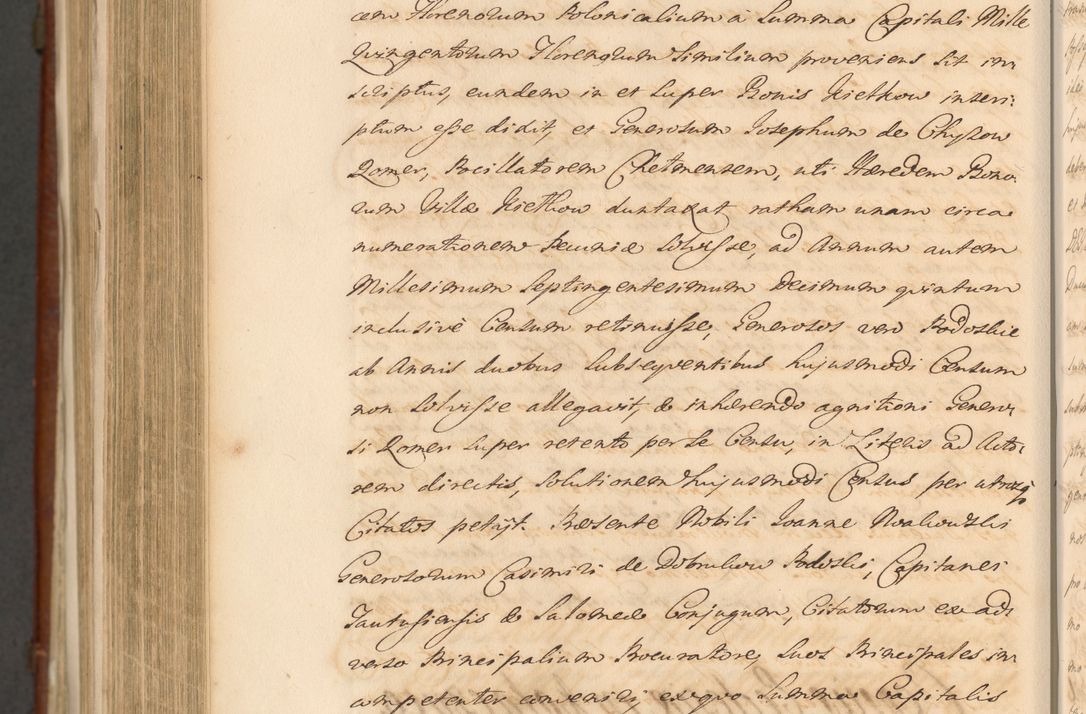 cem Florenorum Polonicalium à Summa Capitali Mille
Quingentorum Florenorum similium proveniens sit in-
scriptus, eundem in et super Bonis Kietkow inscri-
ptum esse didit, et Generosum Josephum de Chyzow
Romer, Pocillatorem Chelmensem, uti Hæredem Bono-
rum Villæ Kietkow duntaxat ratham unam circa
numerationem Pecuniæ Solvisse, ad Annum autem
Millesimum Septingentesimum Decimum quintum
inclusivè Censum retinuisse, Generosos vero Podoskie
ab Annis duobus subsequentibus hujusmodi Censum
non Solvisse allegavit, & inhærendo agnitioni Genero-
si Romer super retento per se Censu, in Literis ad Acto-
rem directis, Solutionem hujusmodi Census per utrosq
Citatos petijt. Præsente Nobili Joanne Noakowski
Generosorum Casimiri de Dobrukow Podoski, Capitanei
& Salomeæ Conjugum, Citatorum ex ad-
verso Principalium Procuratore, suos Principales in-
competenter conveniri, exquo Summa Capitalis